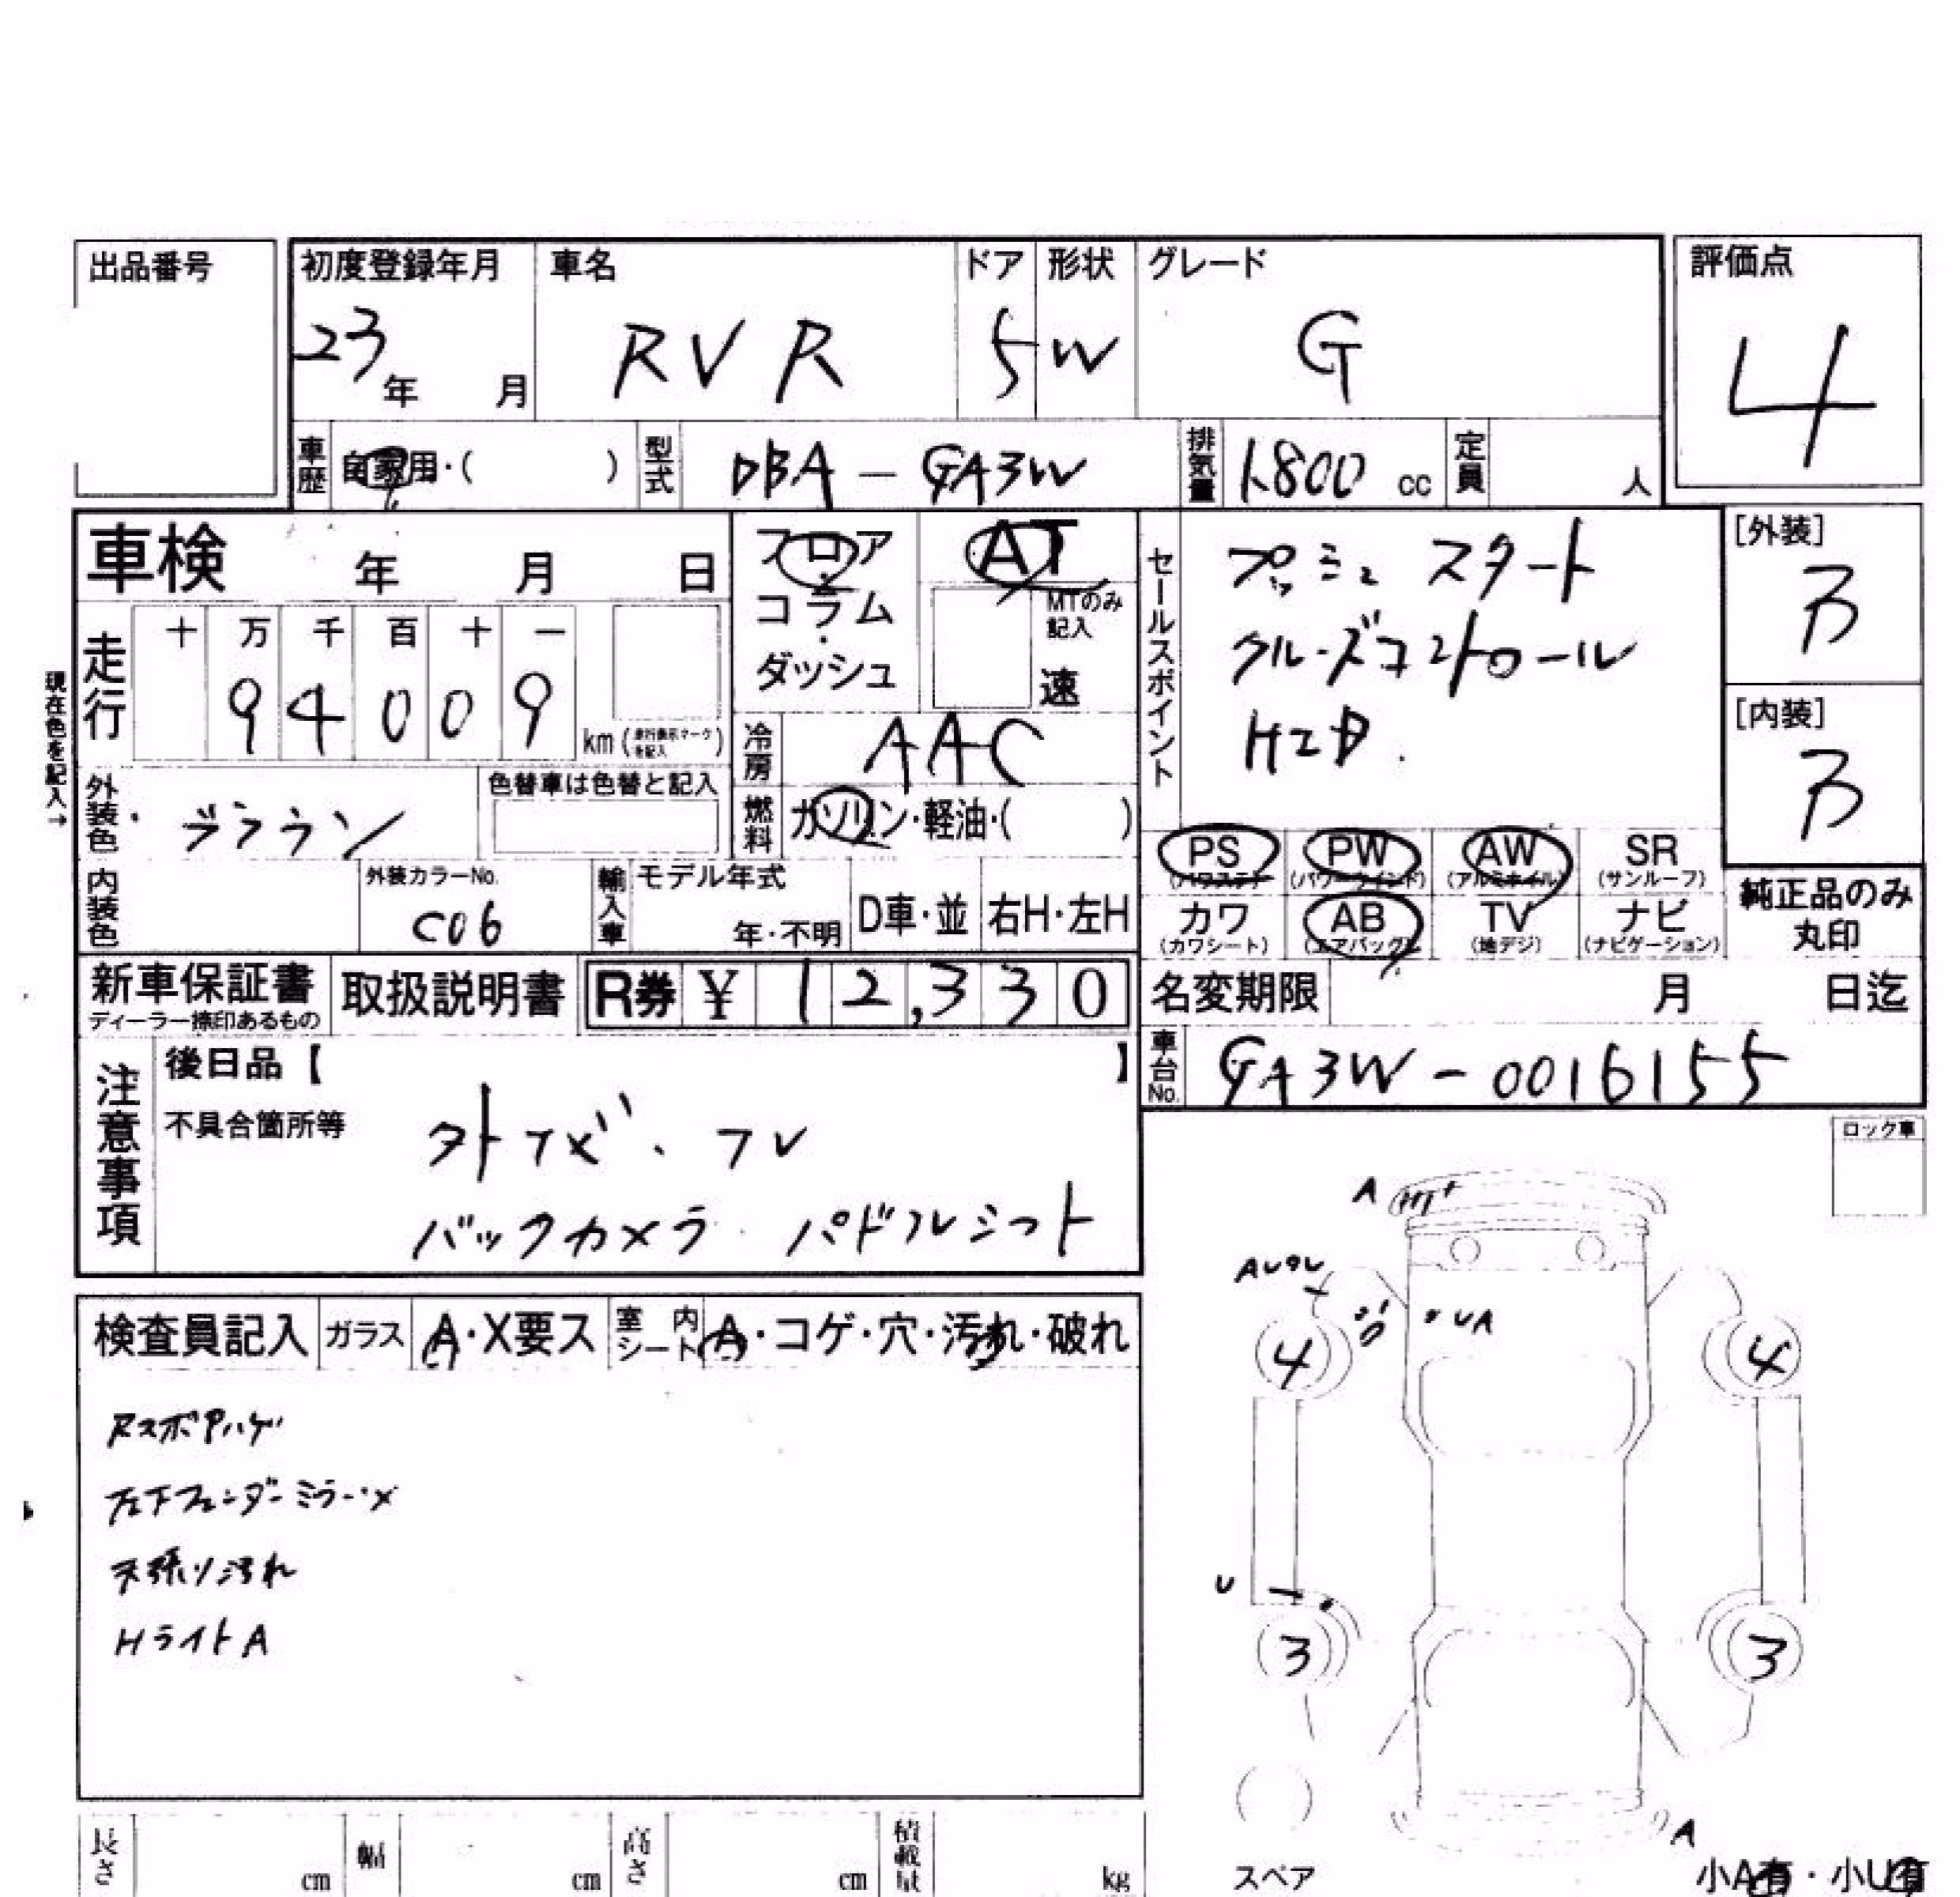 出品番号
初度登録年月 車名 ドア 形状 グレード 評価点
23年 月 RVR 5 W G 4
車歴 自家用・( ) 型式 DBA-GA3W 排気量 1,800 cc 定員 人
車検 年 月 日
フロア・コラム・ダッシュ AT
MTのみ記入
速
セールスポイント
プッシュスタート
クルーズコントロール
HID.
[外装]
B
[内装]
B
現在色を記入→
走行 十 万 千 百 十 一
9 4 0 0 9 km
冷房 AAC
外装色 ブラウン 色替車は色替と記入
燃料 ガソリン・軽油・( )
内装色 外装カラーNo. C06
輸入車 モデル年式 年・不明 D車・並 右H・左H
PS (パワステ) PW (パワーウインド) AW (アルミホイル) SR (サンルーフ)
カワ (カワシート) AB (エアバック) TV (地デジ) ナビ (ナビゲーション)
純正品のみ丸印
新車保証書 ディーラー捺印あるもの 取扱説明書 R券 ¥ 12,330
名変期限 月 日迄
車台No. GA3W-0016155
注意事項
後日品【 】
不具合箇所等
バックカメラ パドルシフト
ロック車
検査員記入 ガラス A・X要ス 室内シート A・コゲ・穴・汚れ・破れ
左下フェンダーミラー・X
天張り汚れ
HライトA
A
UA
4 4
U
3 3
A
スペア
小A有・小U有
長さ cm 幅 cm 高さ cm 積載量 kg